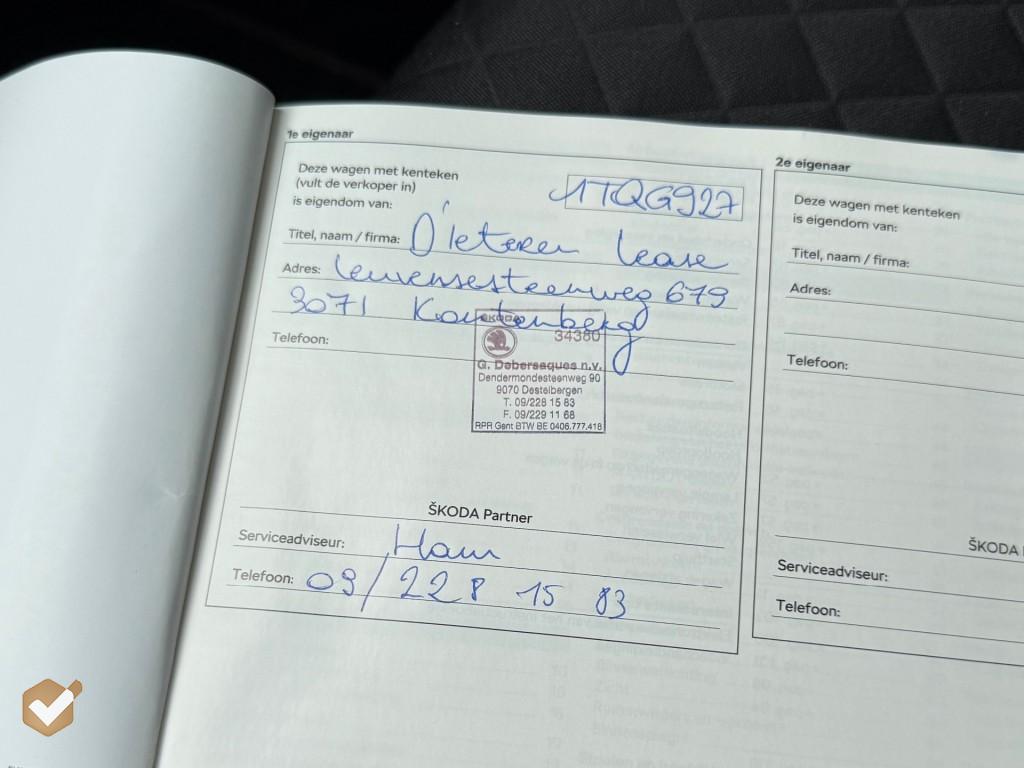 1e eigenaar
Deze wagen met kenteken
(vult de verkoper in)
is eigendom van:
1TQG927
Titel, naam / firma: D'Ieteren Lease
Adres: Leuvensesteenweg 679
3071 Kortenberg
Telefoon:
ŠKODA
34380
G. Debersaques n.v.
Dendermondesteenweg 90
9070 Destelbergen
T. 09/228 15 83
F. 09/229 11 68
RPR Gent BTW BE 0406.777.418
ŠKODA Partner
Serviceadviseur: Ham
Telefoon: 09/228 15 83
2e eigenaar
Deze wagen met kenteken
is eigendom van:
Titel, naam / firma:
Adres:
Telefoon:
ŠKODA
Serviceadviseur:
Telefoon: